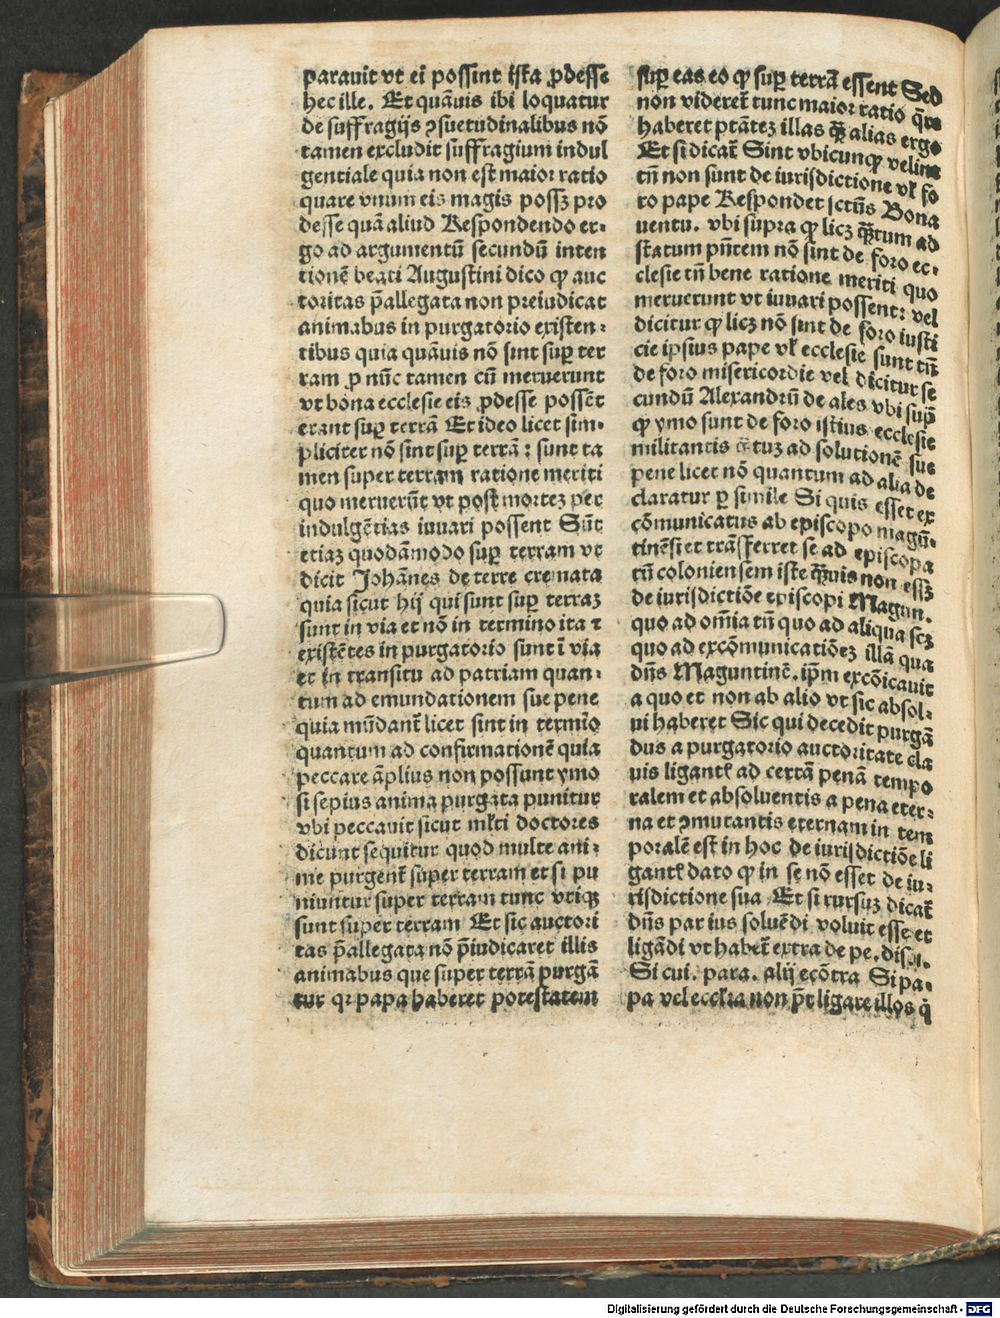 parauit vt ei possint ista ꝓdesse
hec ille. Et quāuis ibi loquatur
de suffragijs ꝯsuetudinalibus nō
tamen excludit suffragium indul
gentiale quia non est maior ratio
quare vnum eis magis possꝫ pro
desse quā aliud Respondendo er⸗
go ad argumentū secundū inten
tionē beati Augustini dico ꝙ auc
toritas p̄allegata non preiudicat
animabus in purgatorio existen⸗
tibus quia quāuis nō sint suꝑ ter
ram ꝓ nūc tamen cū meruerunt
vt bona ecclesie eis ꝓdesse possēt
erant suꝑ terrā Et ideo licet sim⸗
pliciter nō sint suꝑ terrā : sunt ta
men super terram ratione meriti
quo meruerūt vt post morteꝫ per
indulgētias iuuari possent Sūt
etiaꝫ quodāmodo suꝑ terram vt
dicit Johānes de terre cremata
quia sicut hij qui sunt suꝑ terraꝫ
sunt in via et nō in termino ita ⁊
existētes in purgatorio sunt ī via
et in transitu ad patriam quan⸗
tum ad emundationem sue pene
quia mūdant̉ licet sint in termīo
quantum ad confirmationē quia
peccare āplius non possunt ymo
si sepius anima purgata punitur
vbi peccauit sicut ml̉ti doctores
dicunt sequitur quod multe ani⸗
me purgent̉ super terram et si pu
niuntur super terram tunc vtiqꝫ
sunt super terram Et sic auctori
tas p̄allegata nō p̄iudicaret illis
animabus que super terrā purgā
tur qꝛ papa haberet potestatem
suꝑ eas eo ꝙ suꝑ terrā essent Sed
non videret̉ tunc maior ratio q̄re
haberet ptāteꝫ illas qꝫ̄ alias ergo
Et si dicat̉ Sint vbicunqꝫ velint
tn̄ non sunt de iurisdictione vl̉ fo
ro pape Respondet sctūs Bona
uentu. vbi supra ꝙ licꝫ qꝫ̄tum ad
statum pn̄tem nō sint de foro ec⸗
clesie tn̄ bene ratione meriti quo
meruerunt vt iuuari possent: vel
dicitur ꝙ licꝫ nō sint de foro iusti
cie ipsius pape vl̉ ecclesie sunt tn̄
de foro misericordie vel dicitur se
cundū Alexandrū de ales vbi sup̄
ꝙ ymo sunt de foro istius ecclesie
militantis q̄tuꝫ ad solutionē sue
pene licet nō quantum ad alia de
claratur ꝑ simile Si quis esset ex
cōmunicatus ab episcopo magūn⸗
tinēsi et trāsferret se ad episcopa
tū coloniensem iste qꝫ̄uis non essꝫ
de iurisdictiōe episcopi Magun.
quo ad om̄ia tn̄ quo ad aliqua scꝫ
quo ad excōmunicatiōeꝫ illā qua
dn̄s Maguntinē. ip̄m excōicauit
a quo et non ab alio vt sic absol⸗
ui haberet Sic qui decedit purgā
dus a purgatorio auctoritate cla
uis ligant̉ ad certā penā tempo
ralem et absoluentis a pena eter⸗
na et ꝯmutantis eternam in tem
poralē est in hoc de iurisdictiōe li
gant̉ dato ꝙ in se nō esset de iu⸗
risdictione sua Et si rursuꝫ dicat̉
dn̄s par ius soluēdi voluit esse et
ligādi vt habet̉ extra de pe. disti.
Si cui. para. alij ecōtra Si pa⸗
pa vel eccl̉ia non pōt ligare illos q̇
Digitalisierung gefördert durch die Deutsche Forschungsgemeinschaft - DFG